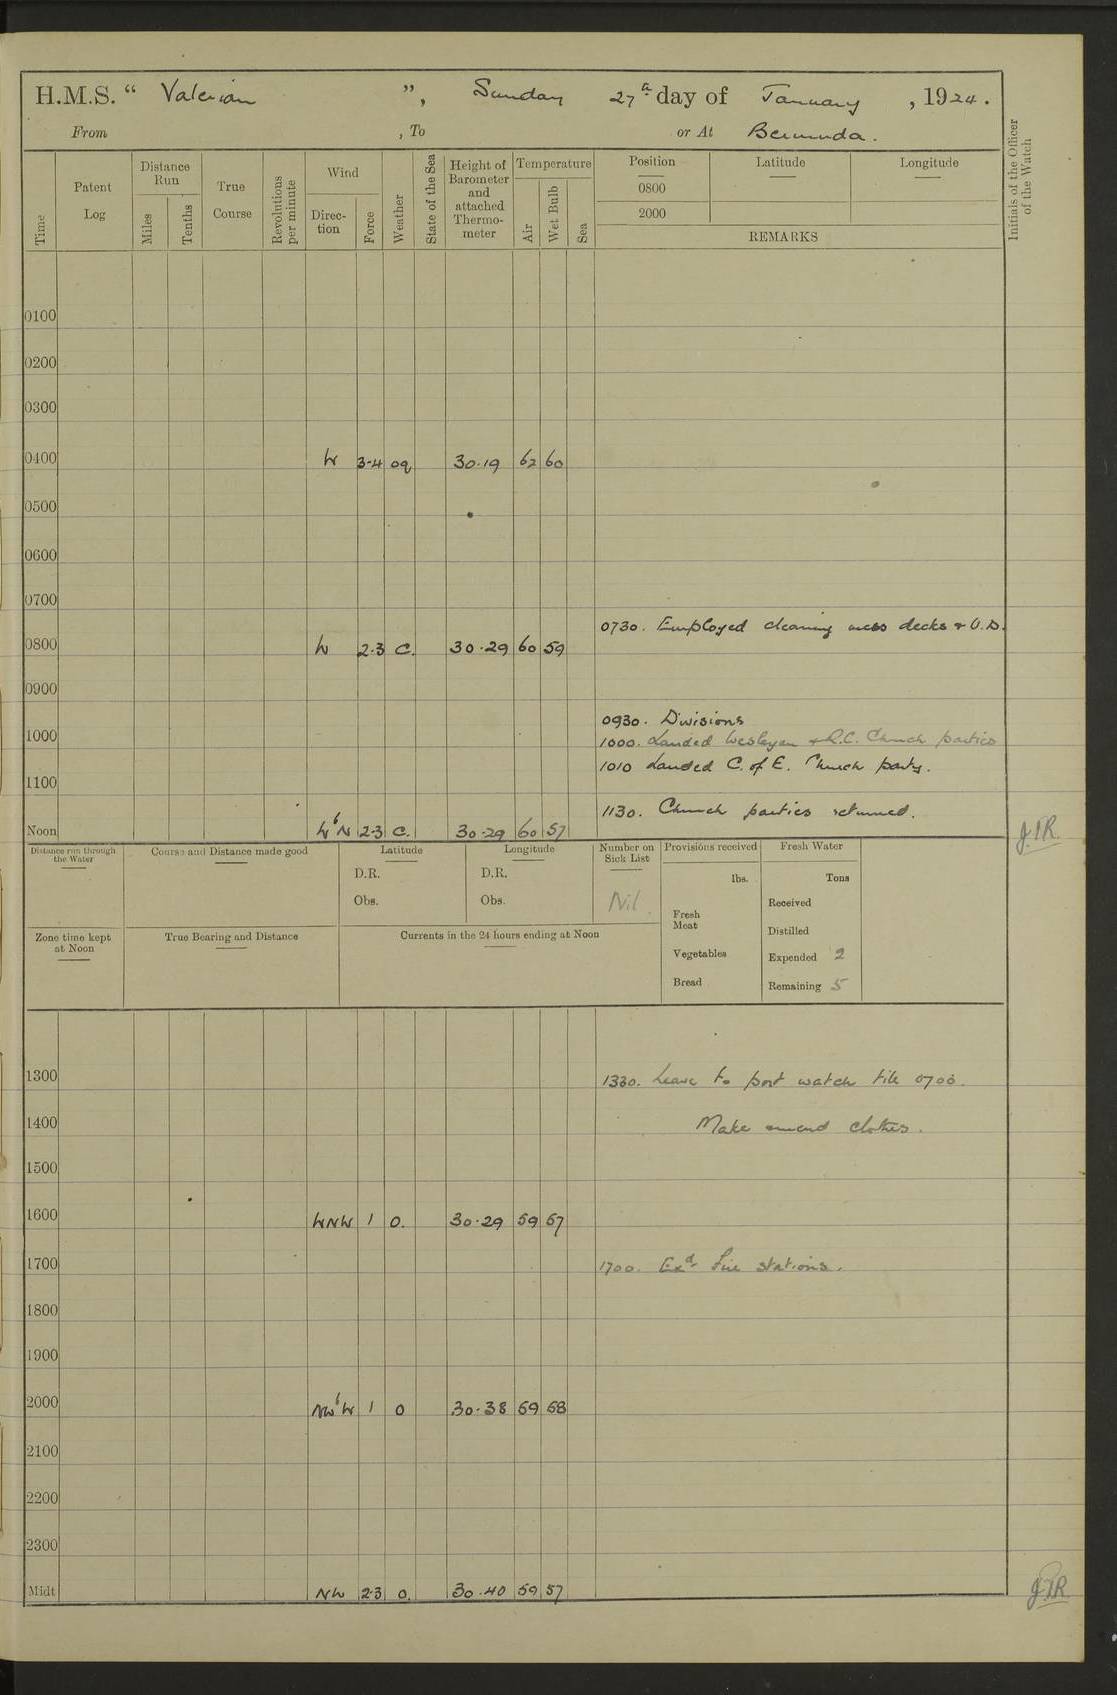 H.M.S. “ Valerian ”, Sunday 27th day of January , 1924.
From , To or At Bermuda.
Time
Patent Log
Distance Run
Miles
Tenths
True Course
Revolutions per minute
Wind
Direc-tion
Force
Weather
State of the Sea
Height of Barometer and attached Thermo-meter
Temperature
Air
Wet Bulb
Sea
Position
0800
2000
Latitude
Longitude
REMARKS
Initials of the Officer of the Watch
0100
0200
0300
0400 W 3-4 oq 30.19 62 60
0500
0600
0700
0730. Employed cleaning mess decks & U.D.
0800 W 2.3 C. 30.29 60 59
0900
0930. Divisions
1000 1000. Landed Wesleyan & R.C. Church parties
1010 Landed C. of E. Church party.
1100
1130. Church parties returned.
Noon WbN 2.3 C. 30.29 60 57 J.I.R.
Distance run through the Water
Course and Distance made good
Latitude
D.R.
Obs.
Longitude
D.R.
Obs.
Number on Sick List
Nil.
Provisions received
lbs.
Fresh Meat
Vegetables
Bread
Fresh Water
Tons
Received
Distilled
Expended 2
Remaining 5
Zone time kept at Noon
True Bearing and Distance
Currents in the 24 hours ending at Noon
1300 1330. Leave to port watch till 0700.
1400 Make amend clothes.
1500
1600 WNW 1 O. 30.29 59 57
1700 1700. Exd Fire stations.
1800
1900
2000 NWbW 1 O 30.38 59 58
2100
2200
2300
Midt NW 2.3 O. 30.40 59 57 J.I.R.